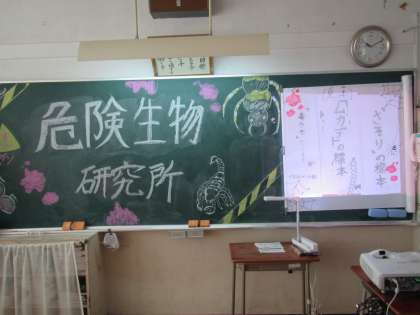 危険生物
研究所
ムカデの標本
さそりの標本